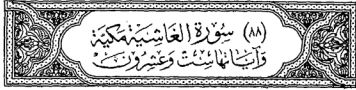 (٨٨) سُورَةُ الْغَاشِيَةِ مَكِيَّة
وَآيَاتُهَا سِتٌّ وَعِشْرُونَ